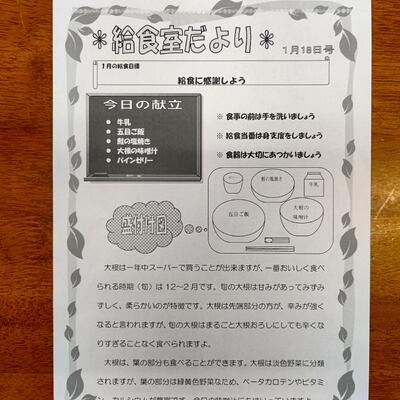 *給食室だより*
1月18日号
1月の給食目標
給食に感謝しよう
今日の献立
● 牛乳
● 五目ご飯
● 鮭の塩焼き
● 大根の味噌汁
● パインゼリー
※ 食事の前は手を洗いましょう
※ 給食当番は身支度をしましょう
※ 食器は大切にあつかいましょう
盛付け図
鮭の塩焼き
牛乳
五目ご飯
大根の
味噌汁
大根は一年中スーパーで買うことが出来ますが、一番おいしく食べ
られる時期（旬）は12～2月です。旬の大根は甘みがあってみずみ
ずしく、柔らかいのが特徴です。大根は先端部分の方が、辛みが強く
なると言われますが、旬の大根はまるごと大根おろしにしても辛くな
りすぎることなく食べられますよ。
大根は、葉の部分も食べることができます。大根は淡色野菜に分類
されますが、葉の部分は緑黄色野菜なため、ベータカロテンやビタミ
ン、カルシウムが豊富です。今日の味噌汁にもはいっていますよ